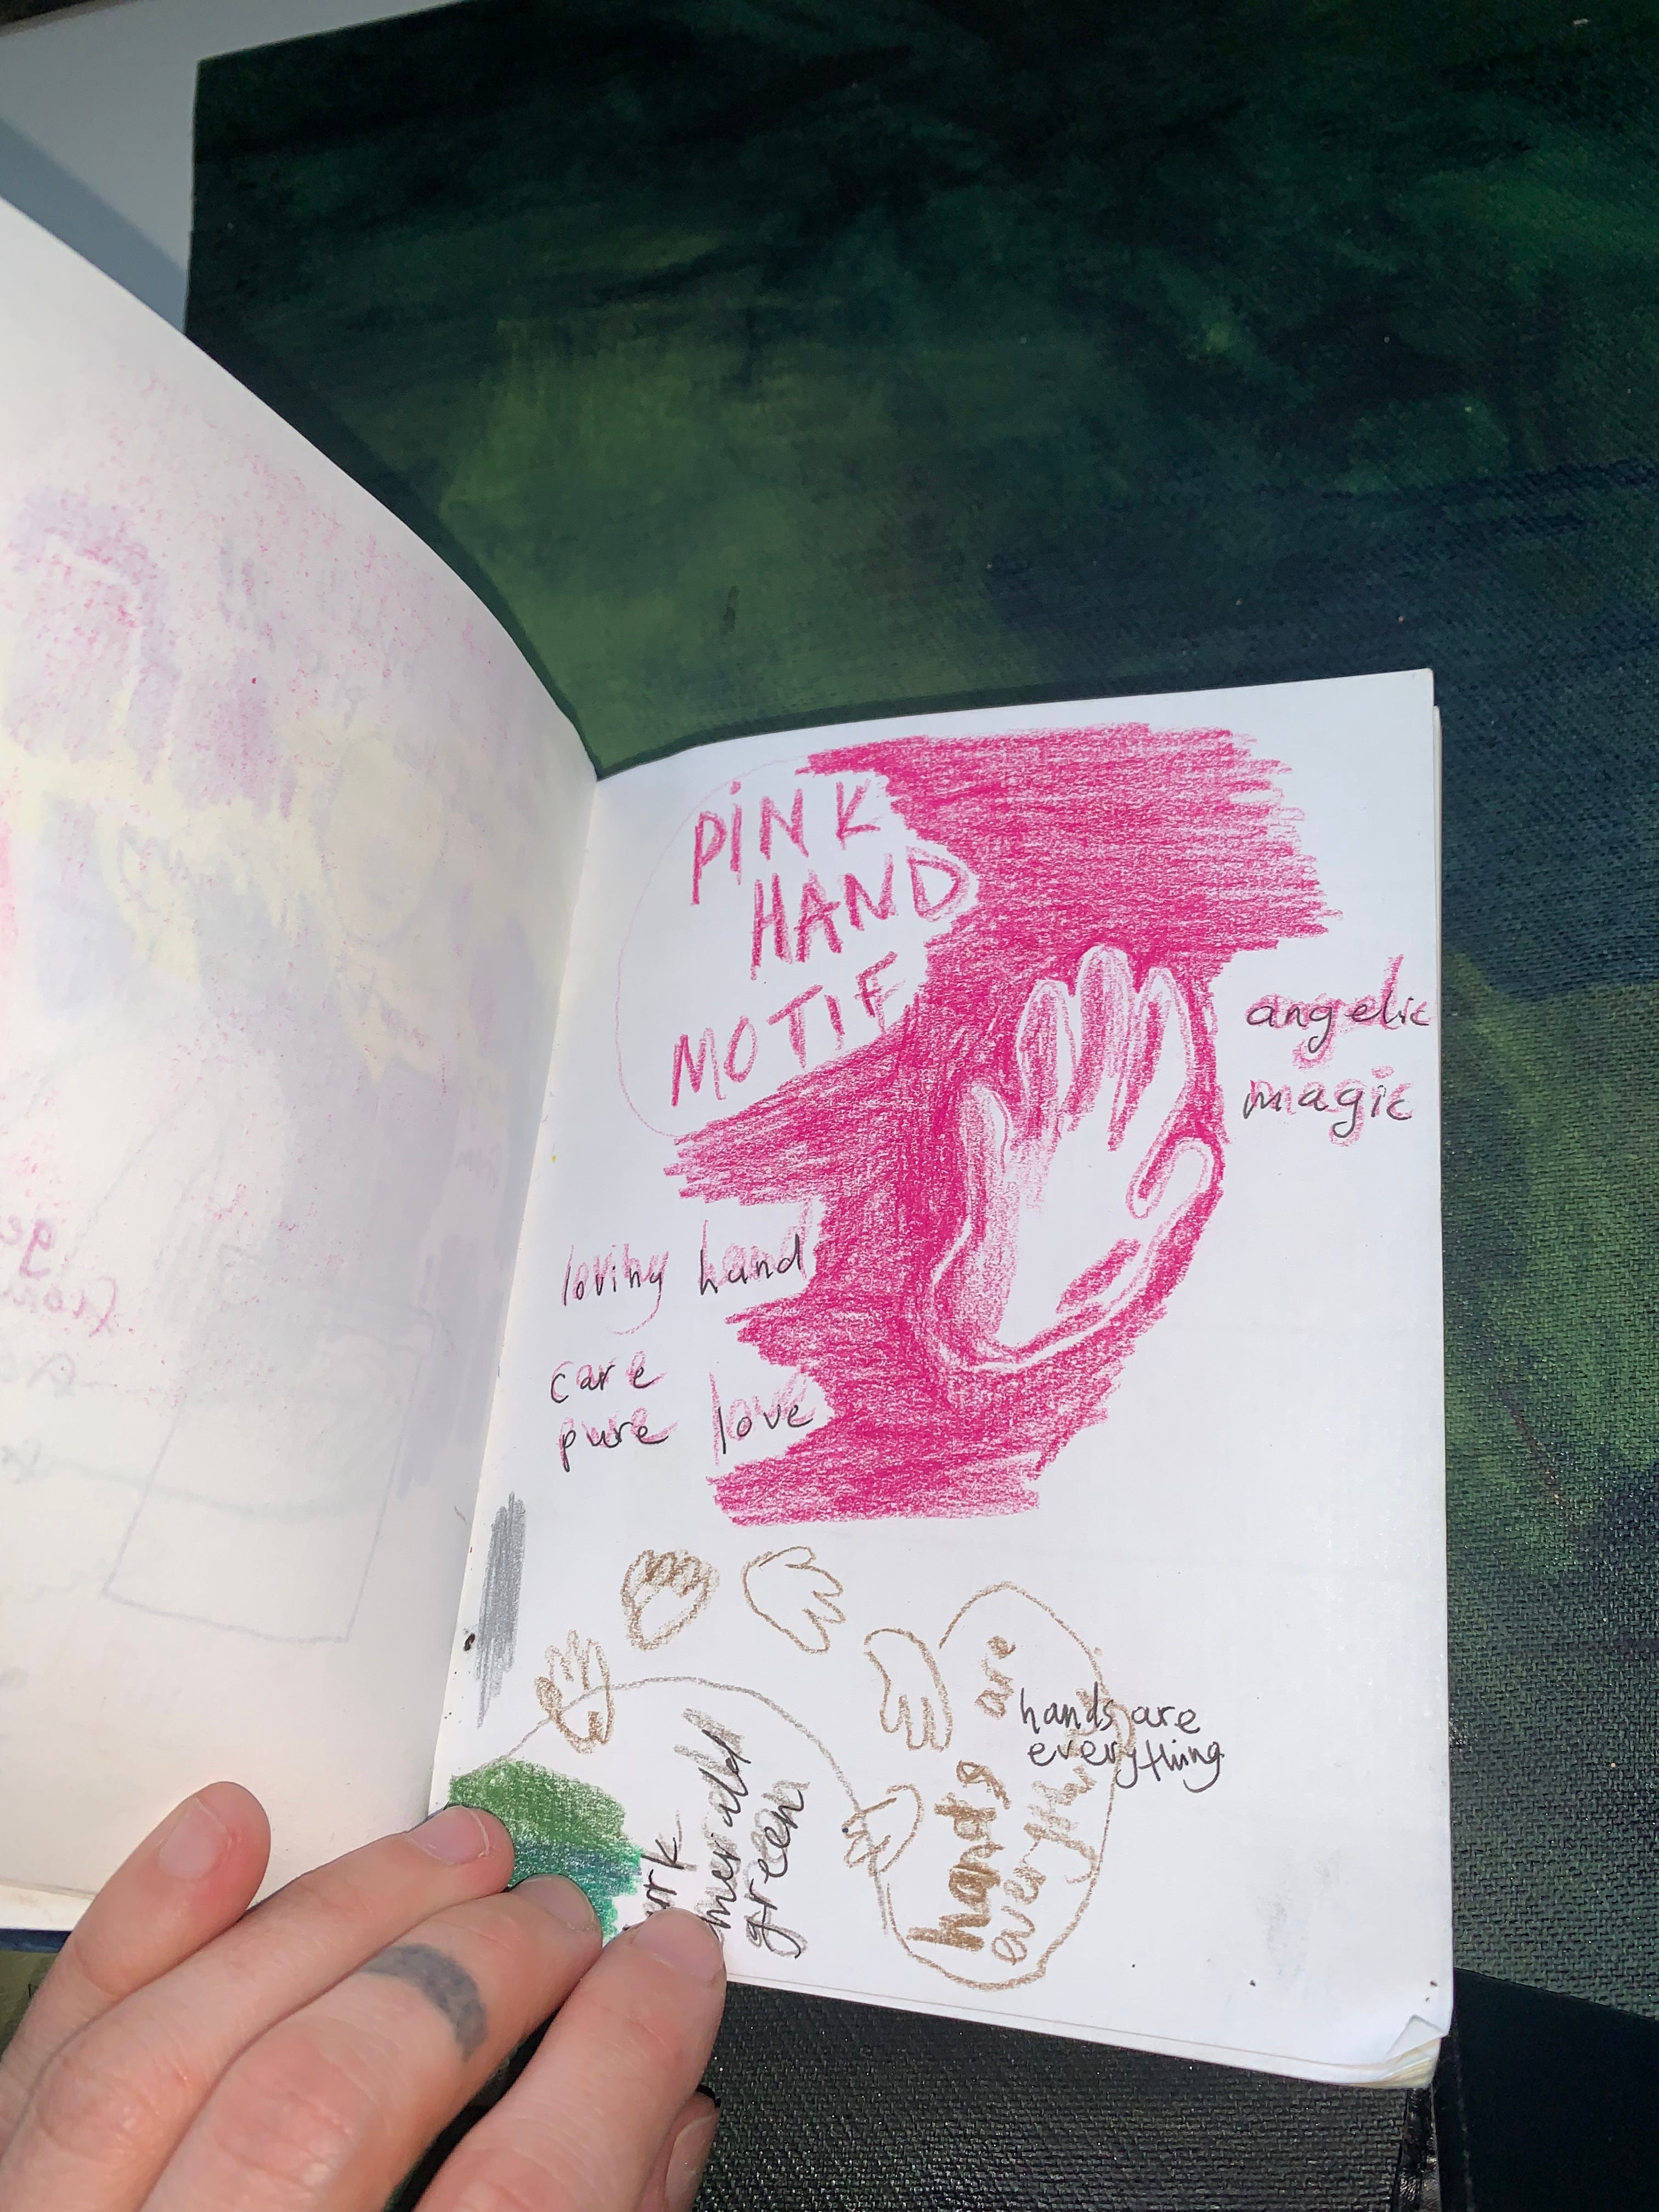 PINK
HAND
MOTIF
angelic
magic
loving hand
care
pure love
are
hands are
everything
hands
green